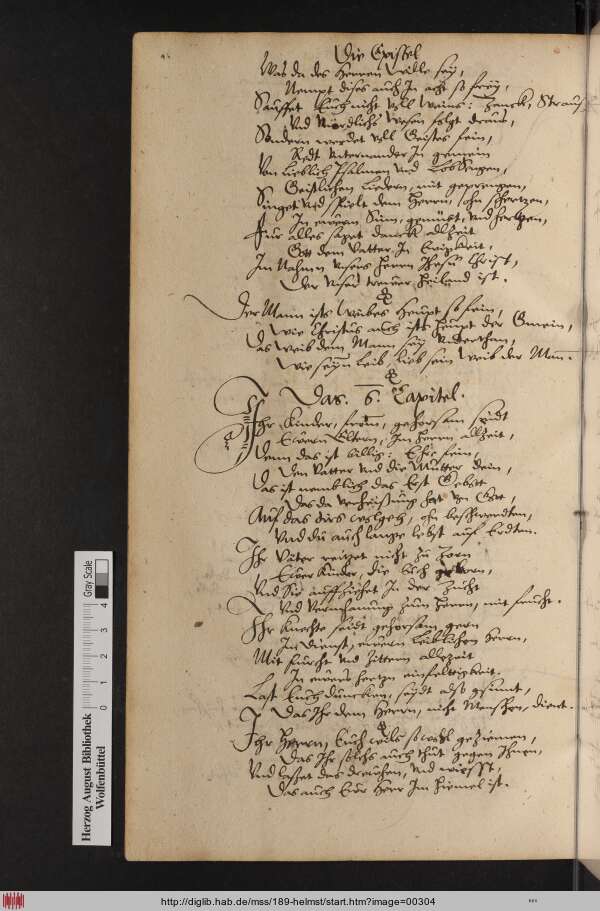 Die Epistel
Was da des Herren Wille sey,
Nempt dises auch In acht so frey,
Sauffet Euch nicht voll Weins: Zanck, Straus
Vnd Vnordlichs Wesen folgt draus,
Sondern werdet voll Geistes fein,
Redt vnternander In gemein
Von Lieblich Psalmen vnd Lobgesengen,
Geistlichen Liedern, mit geprengen,
Singet vnd spielt dem Herrn, ohn schertzen,
In eurem Sinn, gemüet, vnd Hertzen,
Für alles saget danck allzeit
Gott dem Vatter In Ewigkeit,
Im Nahmen vnsers Herrn Jhesu Christ,
Der vnser trewer Heiland ist.
Der Mann ists Weibes Heupt so fein,
Wie Christus auch ists Heupt der Gmein,
Das Weib dem Mann sey vnderthan,
Wie seyn Leib, lieb sein Weib der Man.
Das. 6. Capitel.
Ihr Kinder, from, gehorsam seydt
Ewern Eltern, Im Herrn allzeit,
Denn das ist billig: Ehre fein,
Den Vatter vnd die Mutter dein,
Das ist nemblich das Erst Gebott
Das da verheissung hat von Gott,
Auf das dirs wolgeh, ohn beschwerdten,
Vnd du auch lange lebst auf Erdten.
Ihr Väter reitzet nicht zu Zorn
Ewer Kinder, die Euch geborn,
Vnd Sie auffziehet In der Zucht
Vnd Vermhanung zum Herrn, mit frucht.
Ihr Knechte seydt gehorsam gern
In dienst, eurern leiblichen Herrn,
Mit furcht vnd Zittern allezeit
In eures hertzn einfeltigkeit.
Last Euch duncken, seydt also gsinnt,
Das Ihr dem Herrn, nicht Menschen, dient.
Ihr Herrn, Euch wils so wohl geziemen,
Das Ihr solchs auch thut gegen Ihnen,
Vnd lasset das drawhen, vnd wisst,
Das auch Eur Herr Im Himel ist.
Herzog August Bibliothek
Wolfenbüttel
0 1 2 3 4
Gray Scale
http://diglib.hab.de/mss/189-helmst/start.htm?image=00304